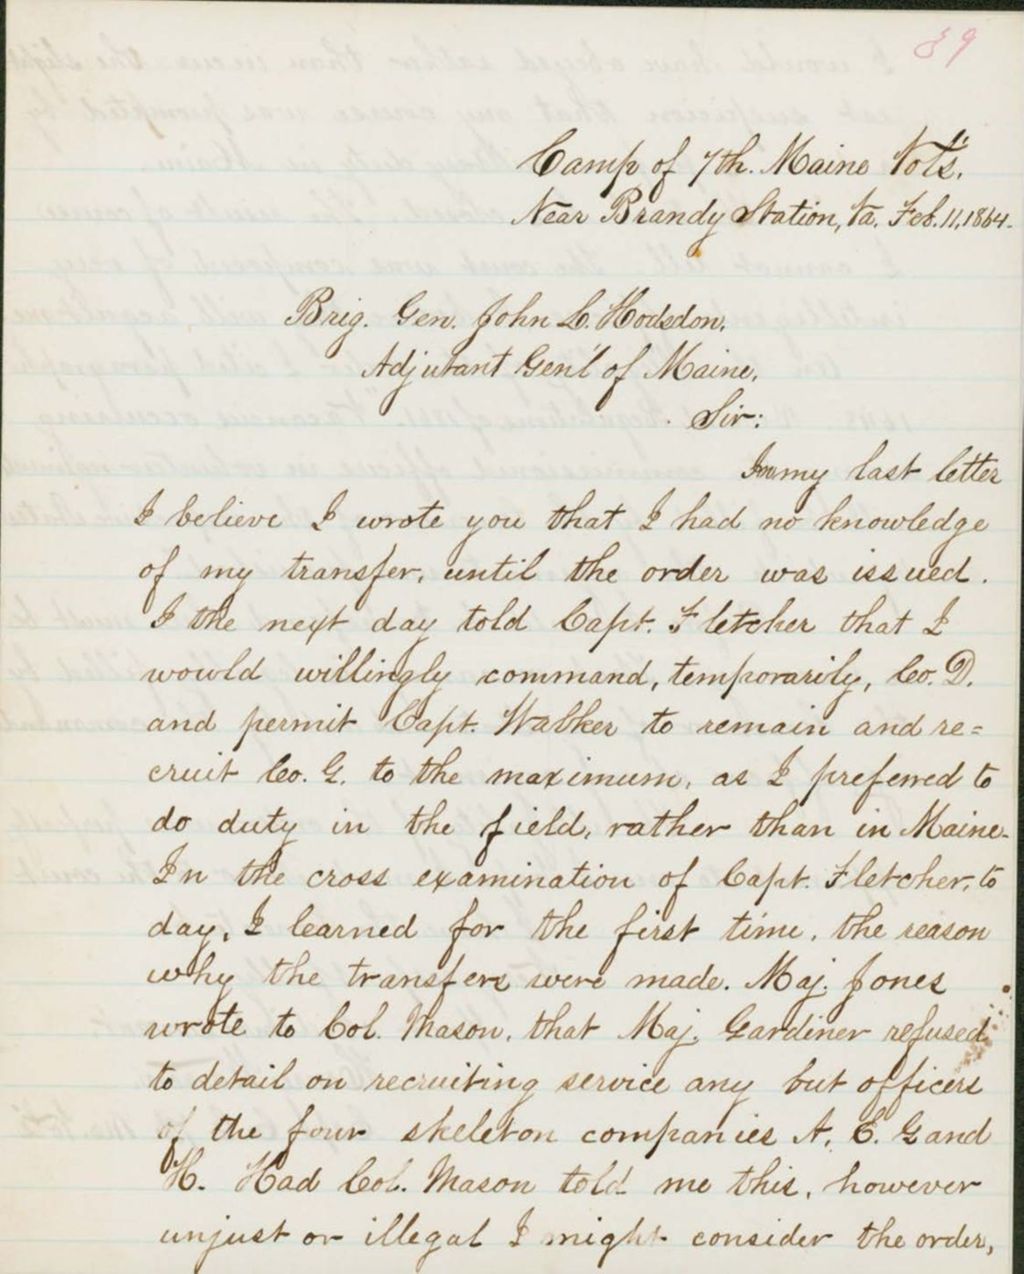 89
Camp of 7th. Maine Vols.
Near Brandy Station, Va. Feb. 11, 1864.
Brig. Gen. John L. Hodsdon,
Adjutant Gen'l of Maine,
Sir:
In my last letter
I believe I wrote you that I had no knowledge
of my transfer, until the order was issued.
I the next day told Capt. Fletcher that I
would willingly command, temporarily, Co. D.
and permit Capt. Walker to remain and re=
cruit Co. G. to the maximum, as I preferred to
do duty in the field, rather than in Maine.
In the cross examination of Capt. Fletcher, to
day, I learned for the first time, the reason
why the transfers were made. Maj. Jones
wrote to Col. Mason, that Maj. Gardiner refused
to detail on recruiting service any but officers
of the four skeleton companies A, C. G and
K. Had Col. Mason told me this, however
unjust or illegal I might consider the order,